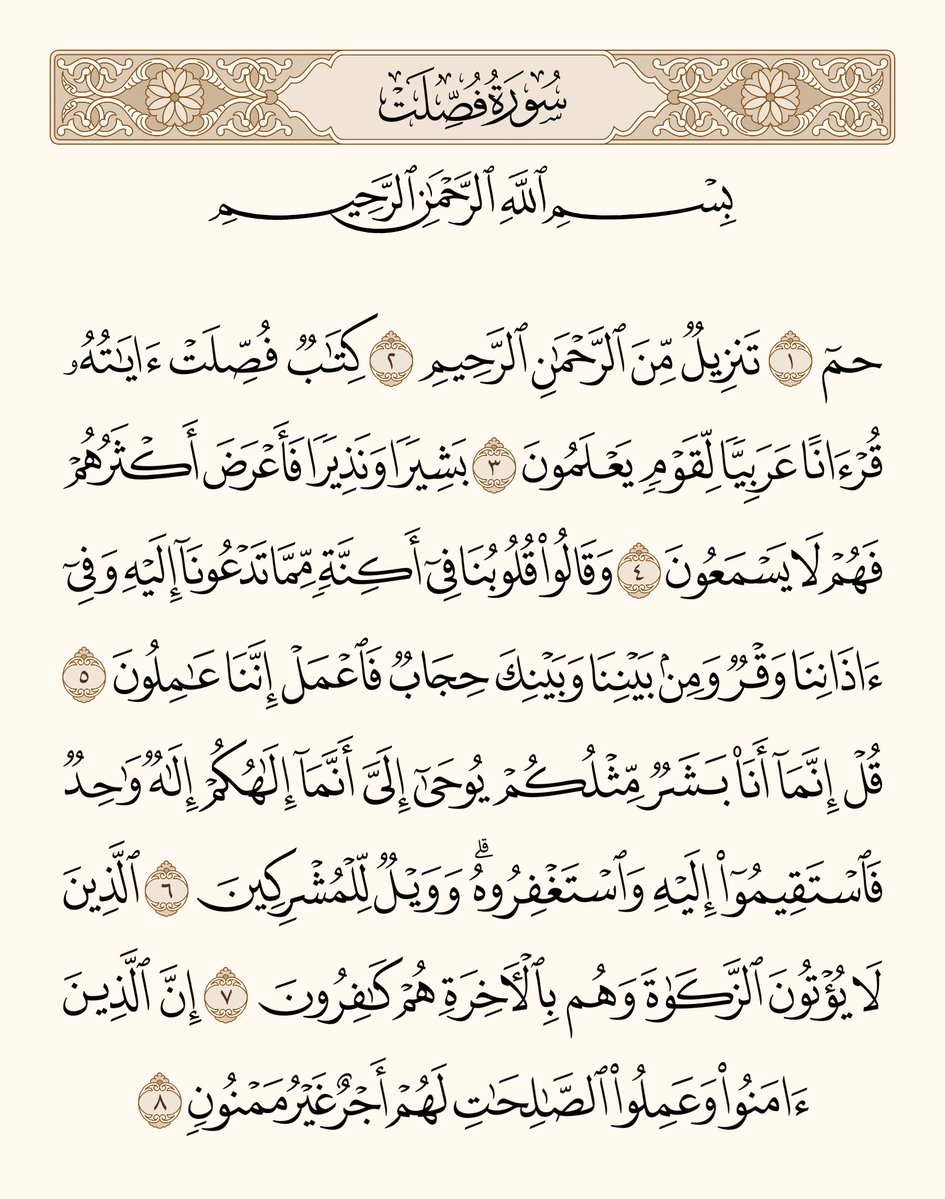 سُورَةُ فُصِّلَتْ
بِسْمِ ٱللَّهِ ٱلرَّحْمَٰنِ ٱلرَّحِيمِ
حمٓ ١ تَنزِيلٌ مِّنَ ٱلرَّحْمَٰنِ ٱلرَّحِيمِ ٢ كِتَٰبٌ فُصِّلَتْ ءَايَٰتُهُۥ
قُرْءَانًا عَرَبِيًّا لِّقَوْمٍ يَعْلَمُونَ ٣ بَشِيرًا وَنَذِيرًا فَأَعْرَضَ أَكْثَرُهُمْ
فَهُمْ لَا يَسْمَعُونَ ٤ وَقَالُوا۟ قُلُوبُنَا فِىٓ أَكِنَّةٍ مِّمَّا تَدْعُونَآ إِلَيْهِ وَفِىٓ
ءَاذَانِنَا وَقْرٌ وَمِنۢ بَيْنِنَا وَبَيْنِكَ حِجَابٌ فَٱعْمَلْ إِنَّنَا عَٰمِلُونَ ٥
قُلْ إِنَّمَآ أَنَا۠ بَشَرٌ مِّثْلُكُمْ يُوحَىٰٓ إِلَىَّ أَنَّمَآ إِلَٰهُكُمْ إِلَٰهٌ وَٰحِدٌ
فَٱسْتَقِيمُوٓا۟ إِلَيْهِ وَٱسْتَغْفِرُوهُ ۗ وَوَيْلٌ لِّلْمُشْرِكِينَ ٦ ٱلَّذِينَ
لَا يُؤْتُونَ ٱلزَّكَوٰةَ وَهُم بِٱلْـَٔاخِرَةِ هُمْ كَٰفِرُونَ ٧ إِنَّ ٱلَّذِينَ
ءَامَنُوا۟ وَعَمِلُوا۟ ٱلصَّٰلِحَٰتِ لَهُمْ أَجْرٌ غَيْرُ مَمْنُونٍ ٨